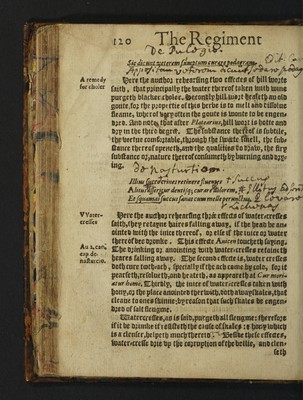 120 The Regiment
De Pulogio.
Sic dicunt veterem sumptum curare podagram.
A remedy for choler
Here the author rehearsing two effectes of hill wort
saith, that principally the water thereof taken with wine
purgeth blacke choler. Secondly hill wort healeth an old
goute, for the propertie of this herbe is to melt and dissolue
fleame, wher of very often the goute is woonte to be engen-
dred. And note, that after Platearius, hill wort is hotte and
dry in the third degree. The substance thereof is subtile,
the vertue comfortable, through the sweete smell, the sub-
stance thereof openeth, and the qualities do
stance of nature thereof consumeth by burning and dry-
ing.
de Nasturtium
Illius succus crines retinere fluentes
Illius succus dentisque curare dolorem,
Et squamas succus sanat cum melle perunctus.
Water-cresses
Here the author rehearsing three effects of water-cresses
saith, they retayne haires falling away, if the head be an-
ointed with the iuice thereof, or else if the iuice or water
thereof bee dronke. This effecte Auicen toucheth saying,
Au. 2. can. cap de nasturcio.
The drinking or anointing with water-cresses retaineth
heares falling away. The second effecte is, water cresses
doth cure tooth-ach, specially if the ach come by cold, for it
pearseth, resolueth, and heateth, as appeareth at Cur moria-
tur homo. Thirdly, the iuice of water-cresses taken with
hony, or the place anointed therewith, doth away skales, that
cleaue to ones skinne; by reason that such skales be engen-
dred of salt fleugme.
Watercresses, as is said, purgeth all fleugme: therefore
if it be dronke it resisteth the cause of skales: & hony which
is a clenser, helpeth much thereto. Beside these effectes,
water-cresse drie vp the corruption of the bellie, and clen-
seth